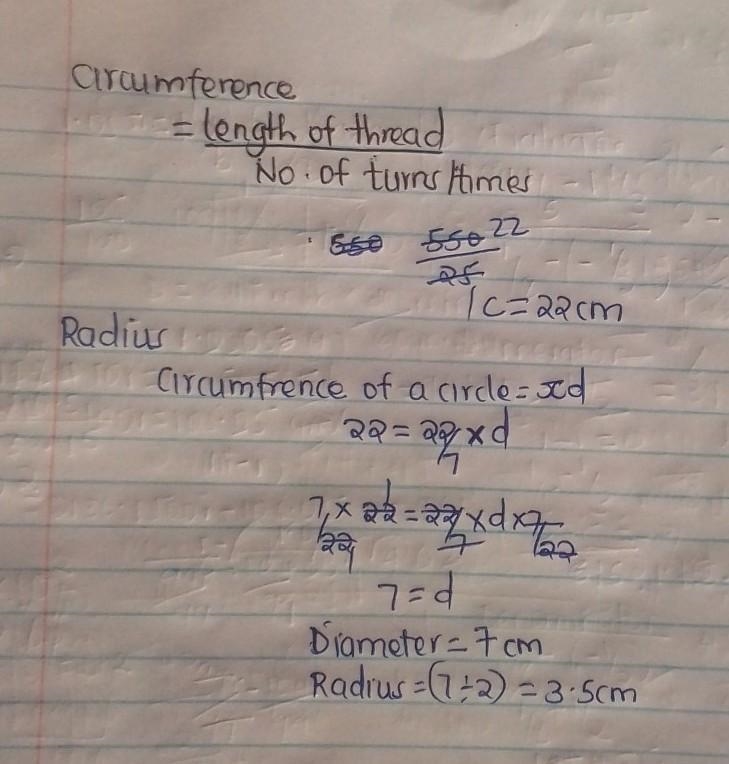 Circumference
= Length of thread
No. of turns/times
550 550 22
25
C = 22cm
Radius
Circumfrence of a circle = xd
22 = 22/7 x d
7/22 x 22 1 = 22/7 x d x 7/22
7 = d
Diameter = 7cm
Radius = (7÷2) = 3.5cm